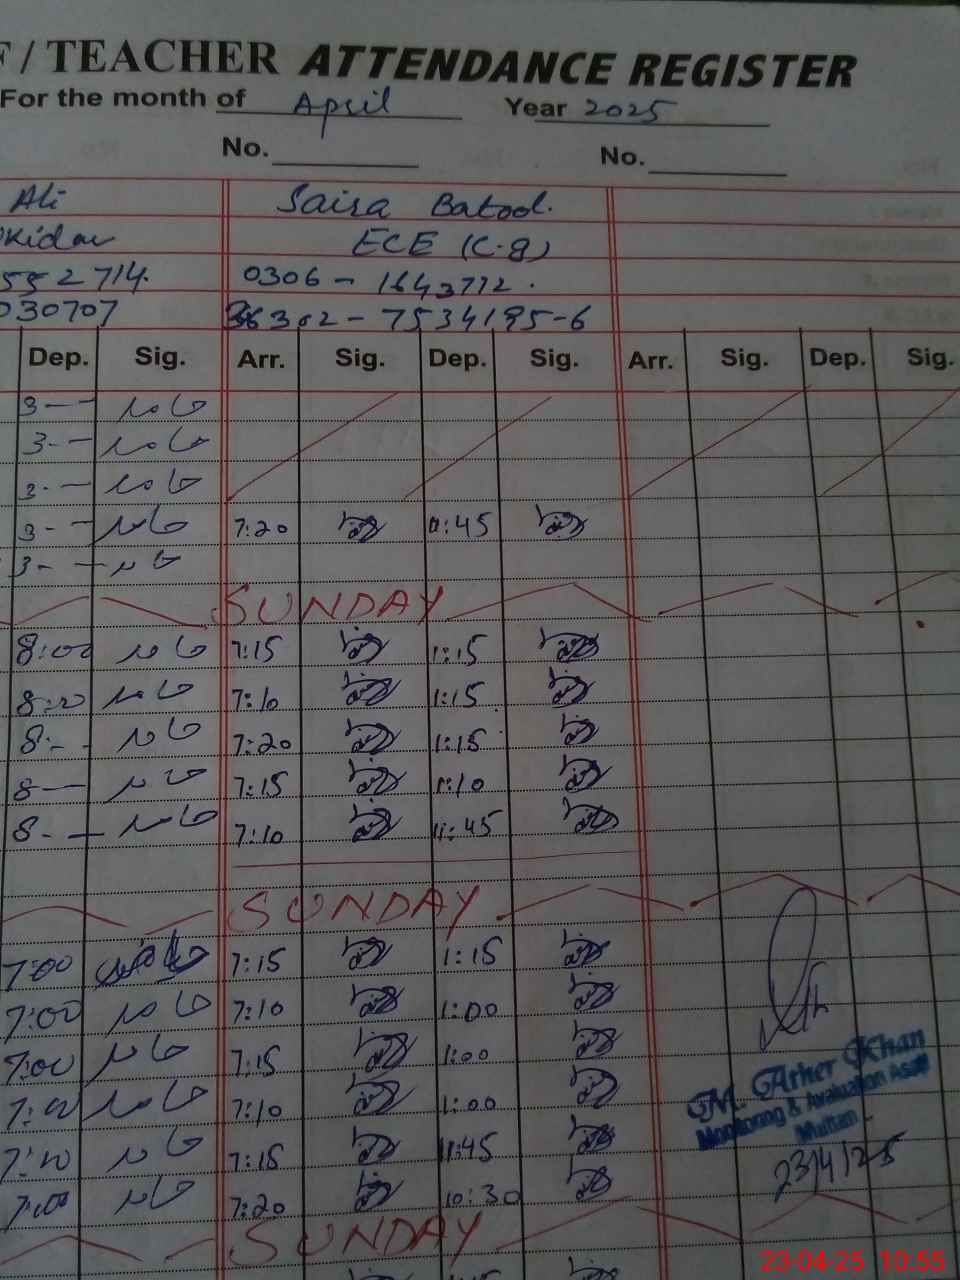 F / TEACHER ATTENDANCE REGISTER
For the month of April Year 2025
No. No.
Ali Saira Batool.
Kidar ECE (C-8)
552714. 0306 - 1643772.
030707 36302-7534195-6
Dep. Sig. Arr. Sig. Dep. Sig. Arr. Sig. Dep. Sig.
3--
3--
3--
3-- 7:20 11:45
3--
SUNDAY
8:00 7:15 1:15
8:00 7:10 1:15
8:-- 7:20 1:15
8-- 7:15 1:10
8-- 7:10 11:45
SUNDAY
7:00 7:15 1:15
7:00 7:10 1:00
7:00 7:15 1:00
7:00 7:10 1:00
7:00 7:15 11:45
7:00 7:20 10:30
SUNDAY
M. Ather Khan
Monitoring & Avaluation Asstt
Multan
23/4/25
23-04-25 10:55